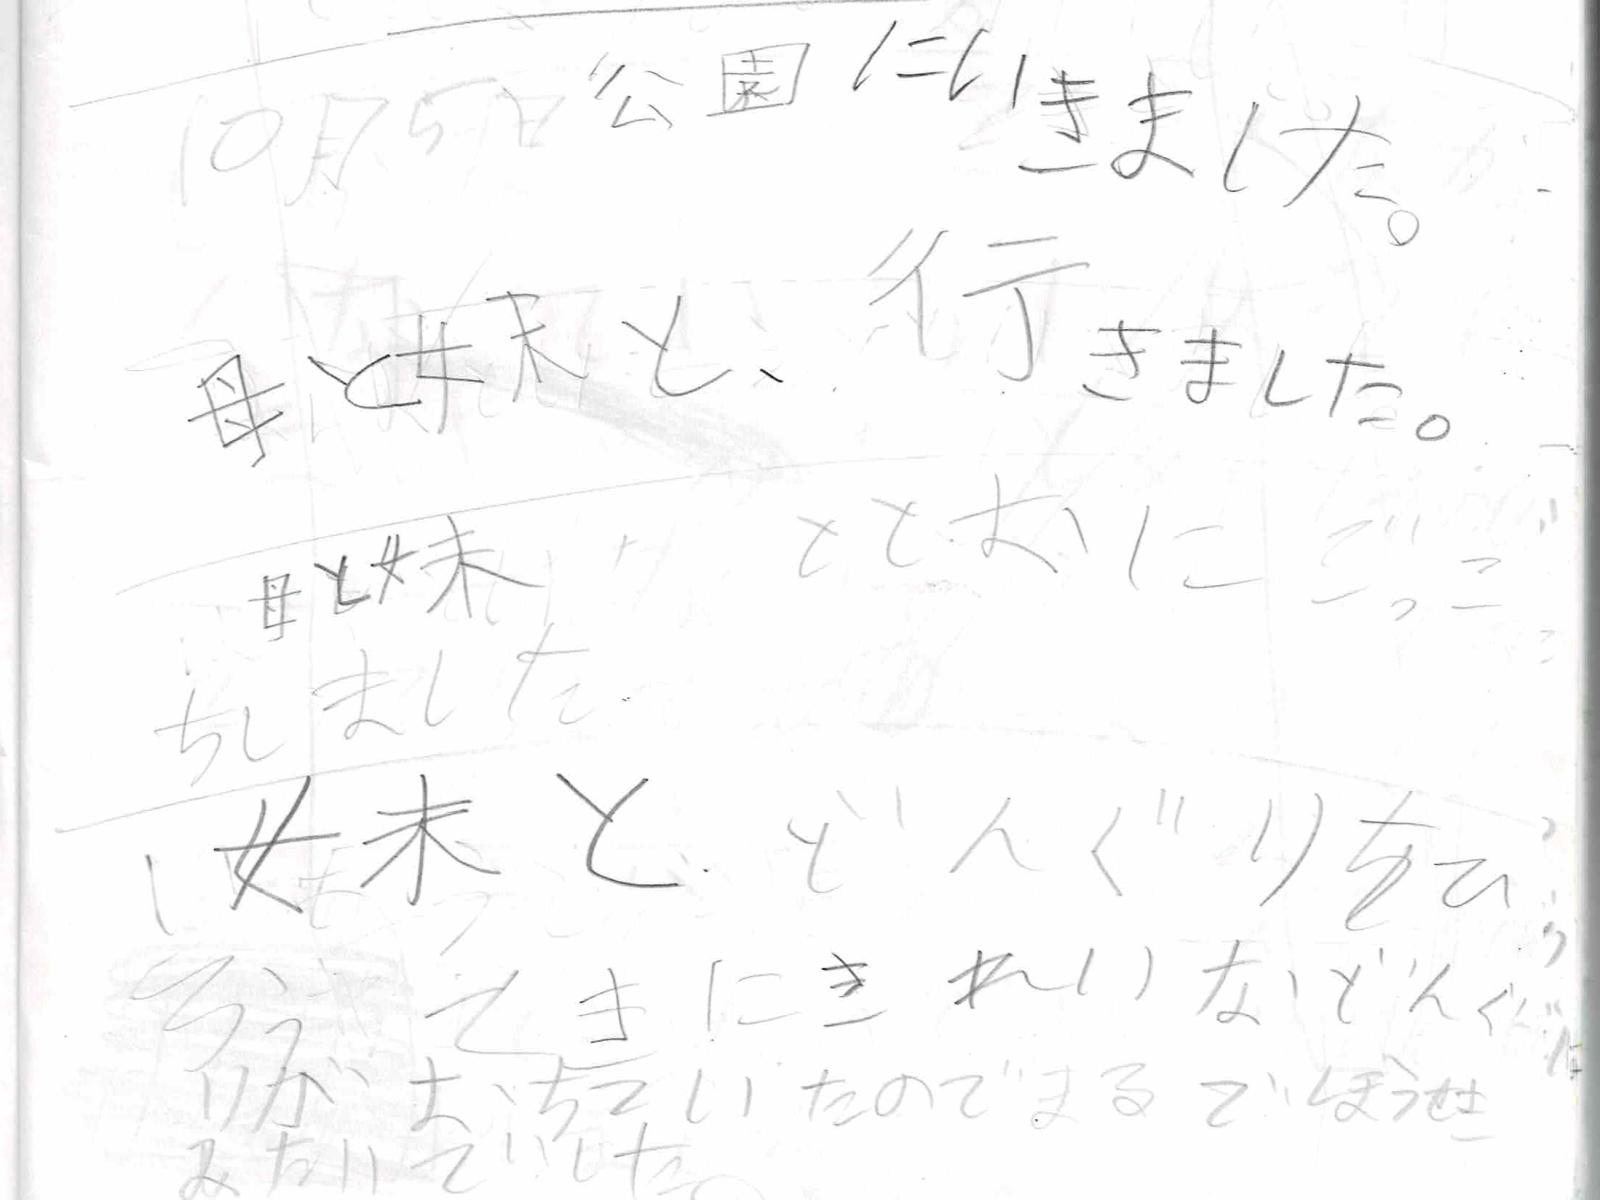 10月5日 公園にいきました。
母と妹と、行きました。
母と妹 ととおにごっこ
もしました
妹と どんぐりをひ
ろうてきにきれいなどんぐ
りがおちていたのでまるでほうせき
みたいでした。